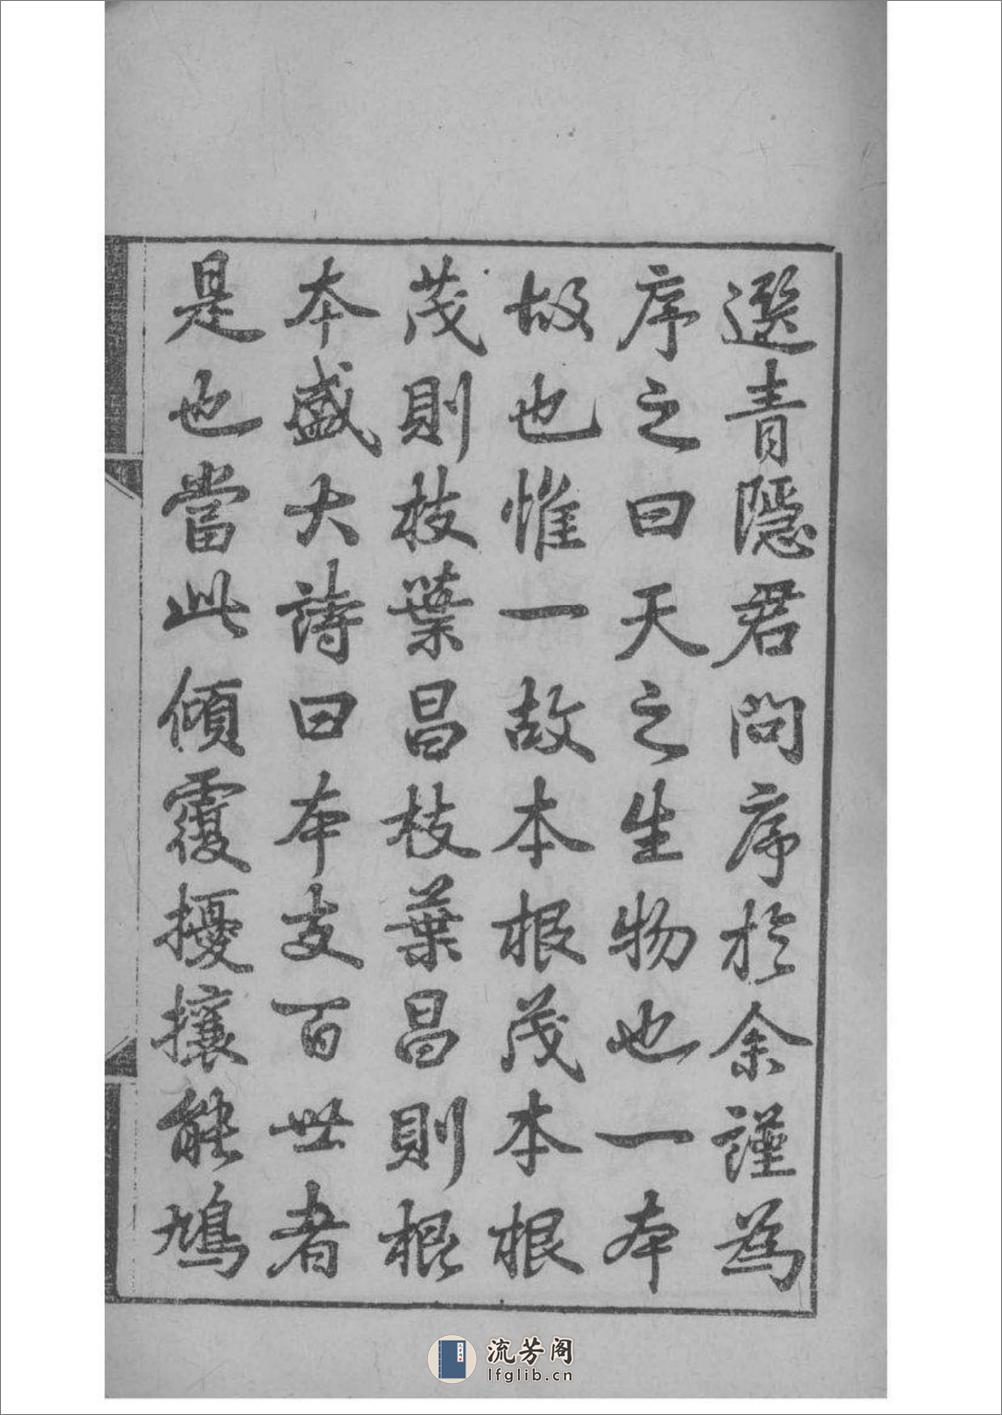 選青隱君問序於余謹為
序之曰天之生物也一本
故也惟一故本根茂本根
茂則枝葉昌枝葉昌則根
本盛大詩曰本支百世者
是也當此傾覆擾攘能鳩
流芳阁
lfglib.cn